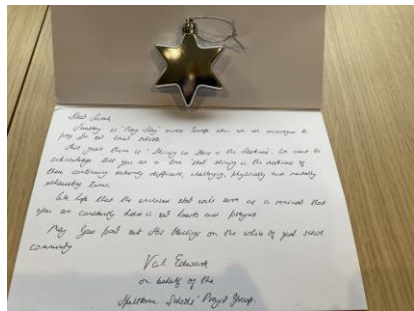 Dear Sarah,
Sunday is 'Pray Day' across Europe when we are encouraged to
pray for our local schools.
This year's theme is 'Shining as Stars in the Darkness'. We want to
acknowledge that you are a 'star' that shining in the darkness of
these continuing extremely difficult, challenging, physically and mentally
exhausting times.
We hope that the enclosed star will serve as a reminder that
you are constantly held in our hearts and prayers
May God pour out His blessings on the whole of your school
community
Val Edward
on behalf of the
Schools' Prayer Group.